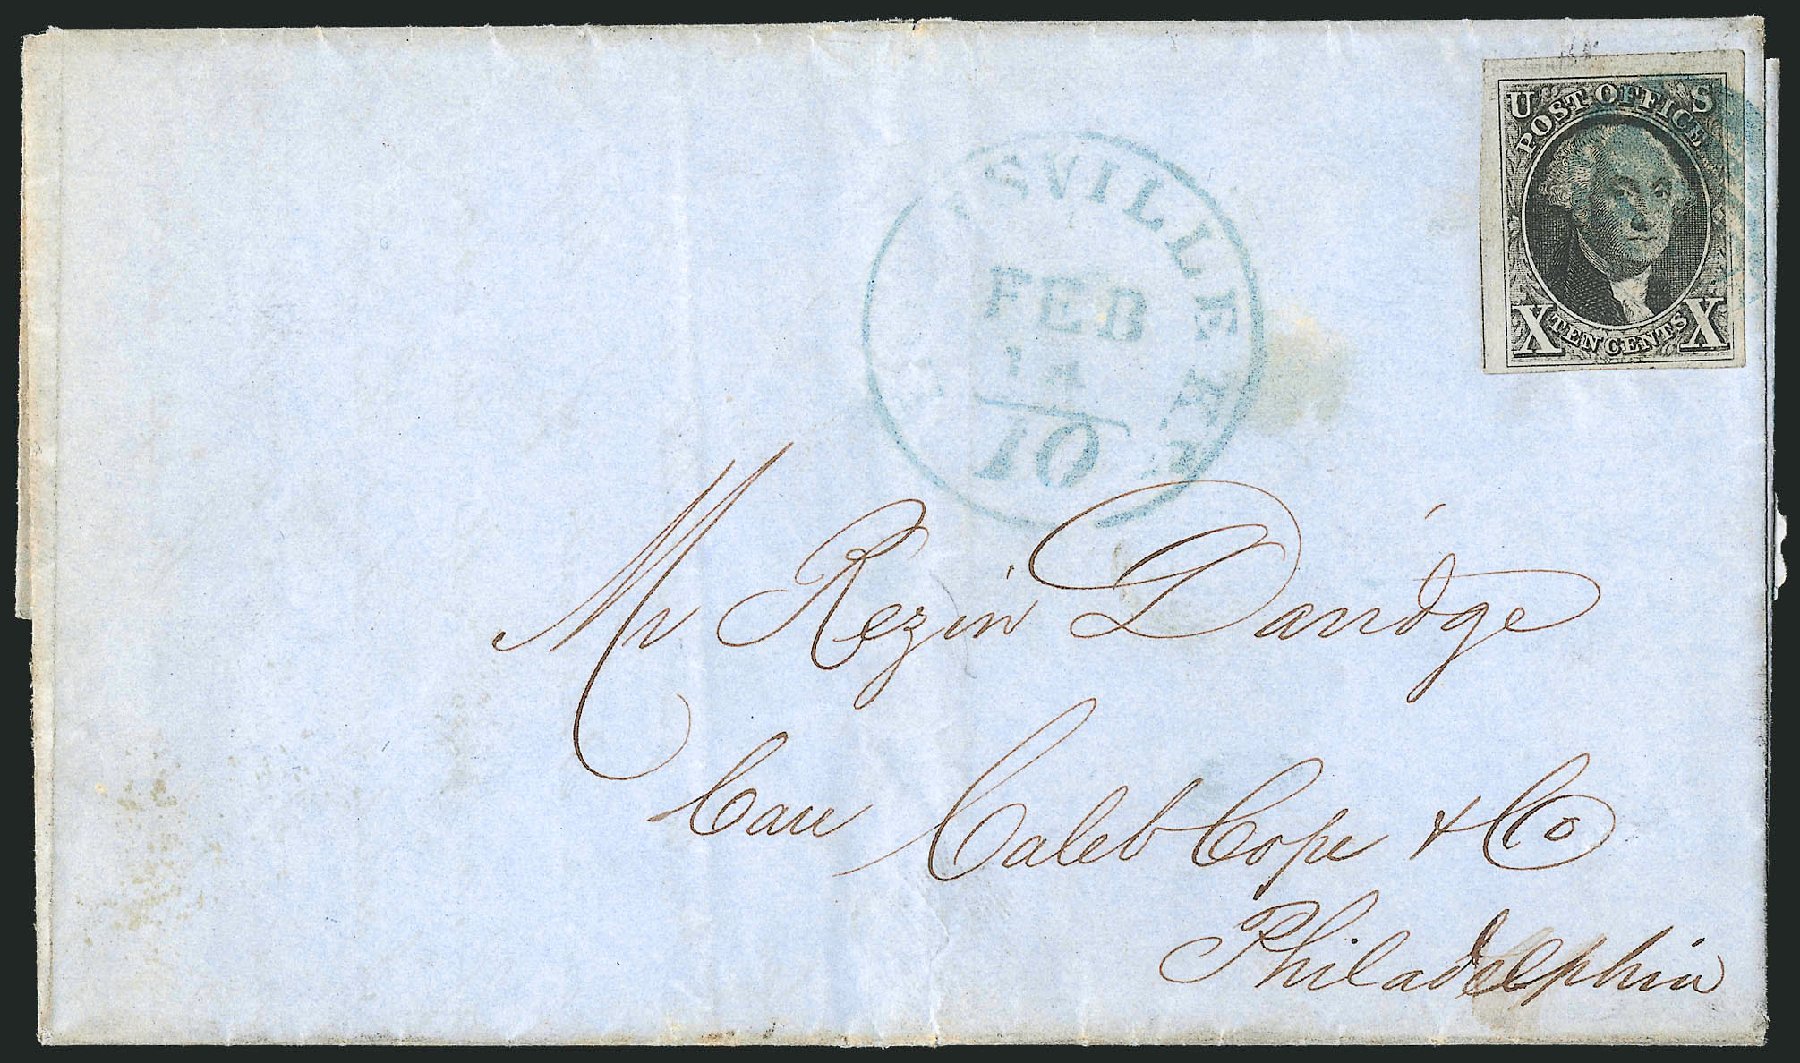 U S
POST OFFICE
X TEN CENTS X
SVILLE K
FEB
10
Mr Rezin Davidge
Care Caleb Cope & Co
Philadelphia